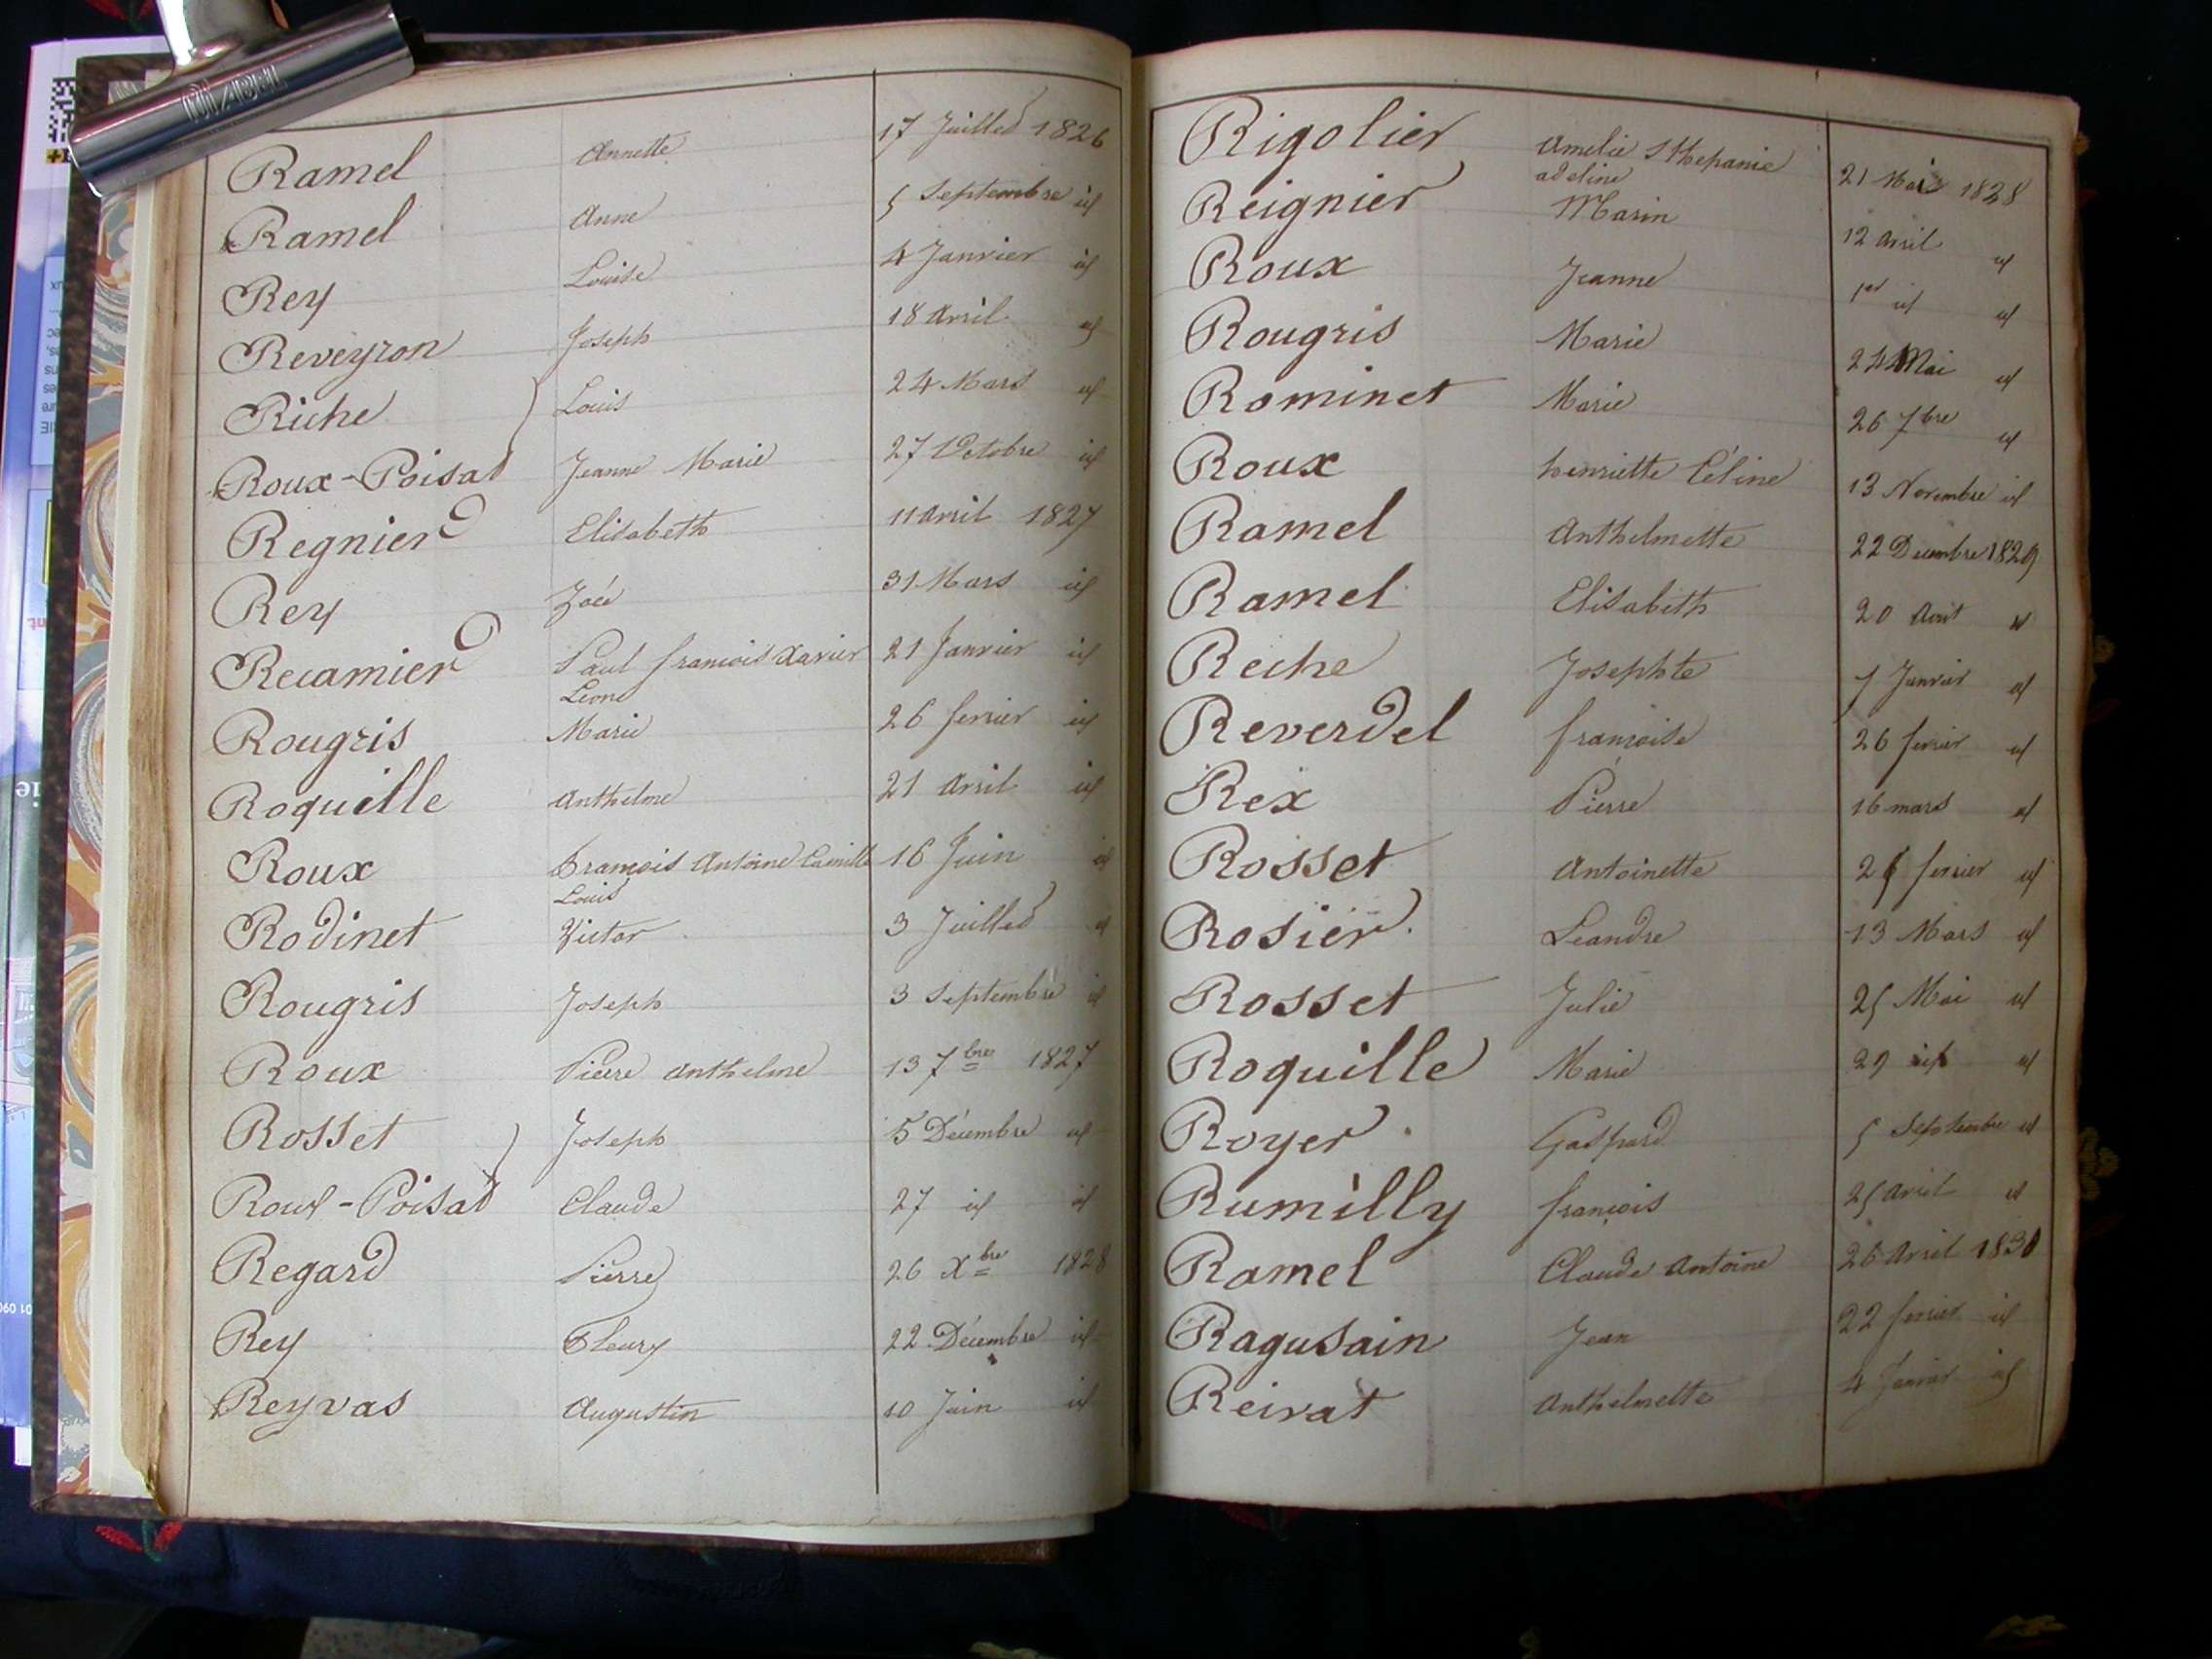 Ramel Annette 17 Juillet 1826
Ramel Anne 5 Septembre id
Rey Louise 4 Janvier id
Reveyron Joseph 18 Avril id
Riche Louis 24 Mars id
Roux-Poisat Jeanne Marie 27 Octobre id
Regnier Elisabeth 11 Avril 1827
Rey Zoé 31 Mars id
Recamier Paul françois Xavier 21 Janvier id
Leon
Rougris Marie 26 fevrier id
Roquille Anthelme 21 Avril id
Roux François Antoine Camille 16 Juin id
Louis
Rodinet Victor 3 Juillet id
Rougris Joseph 3 Septembre id
Roux Pierre Anthelme 13 7bre 1827
Rosset Joseph 5 Décembre id
Roux-Poisat Claude 27 id id
Regard Pierre 26 Xbre 1828
Rey Fleury 22 Décembre id
Reyvas Augustin 10 Juin id
Rigolier Amelie Sthepanie
adeline 21 1828
Reignier Marin 12 Avril id
Roux Jeanne 1er id id
Rougris Marie 24 Mai id
Rominet Marie 26 7bre id
Roux henriette Céline 13 Novembre id
Ramel Anthelmette 22 Decembre 1829
Ramel Elisabeth 20 Aout id
Reche Josephte 7 Janvier id
Reverdel françoise 26 fevrier id
Rex Pierre 16 mars id
Rosset Antoinette fevrier id
Rosier Leandre 13 Mars id
Rosset Julie 25 Mai id
Roquille Marie 29 id id
Royer Gaspard 5 Septembre id
Rumilly françois 25 Avril id
Ramel Claude Antoine 26 Avril 1830
Ragusain Jean 22 fevrier id
Reirat Anthelmette 4 Janvier id